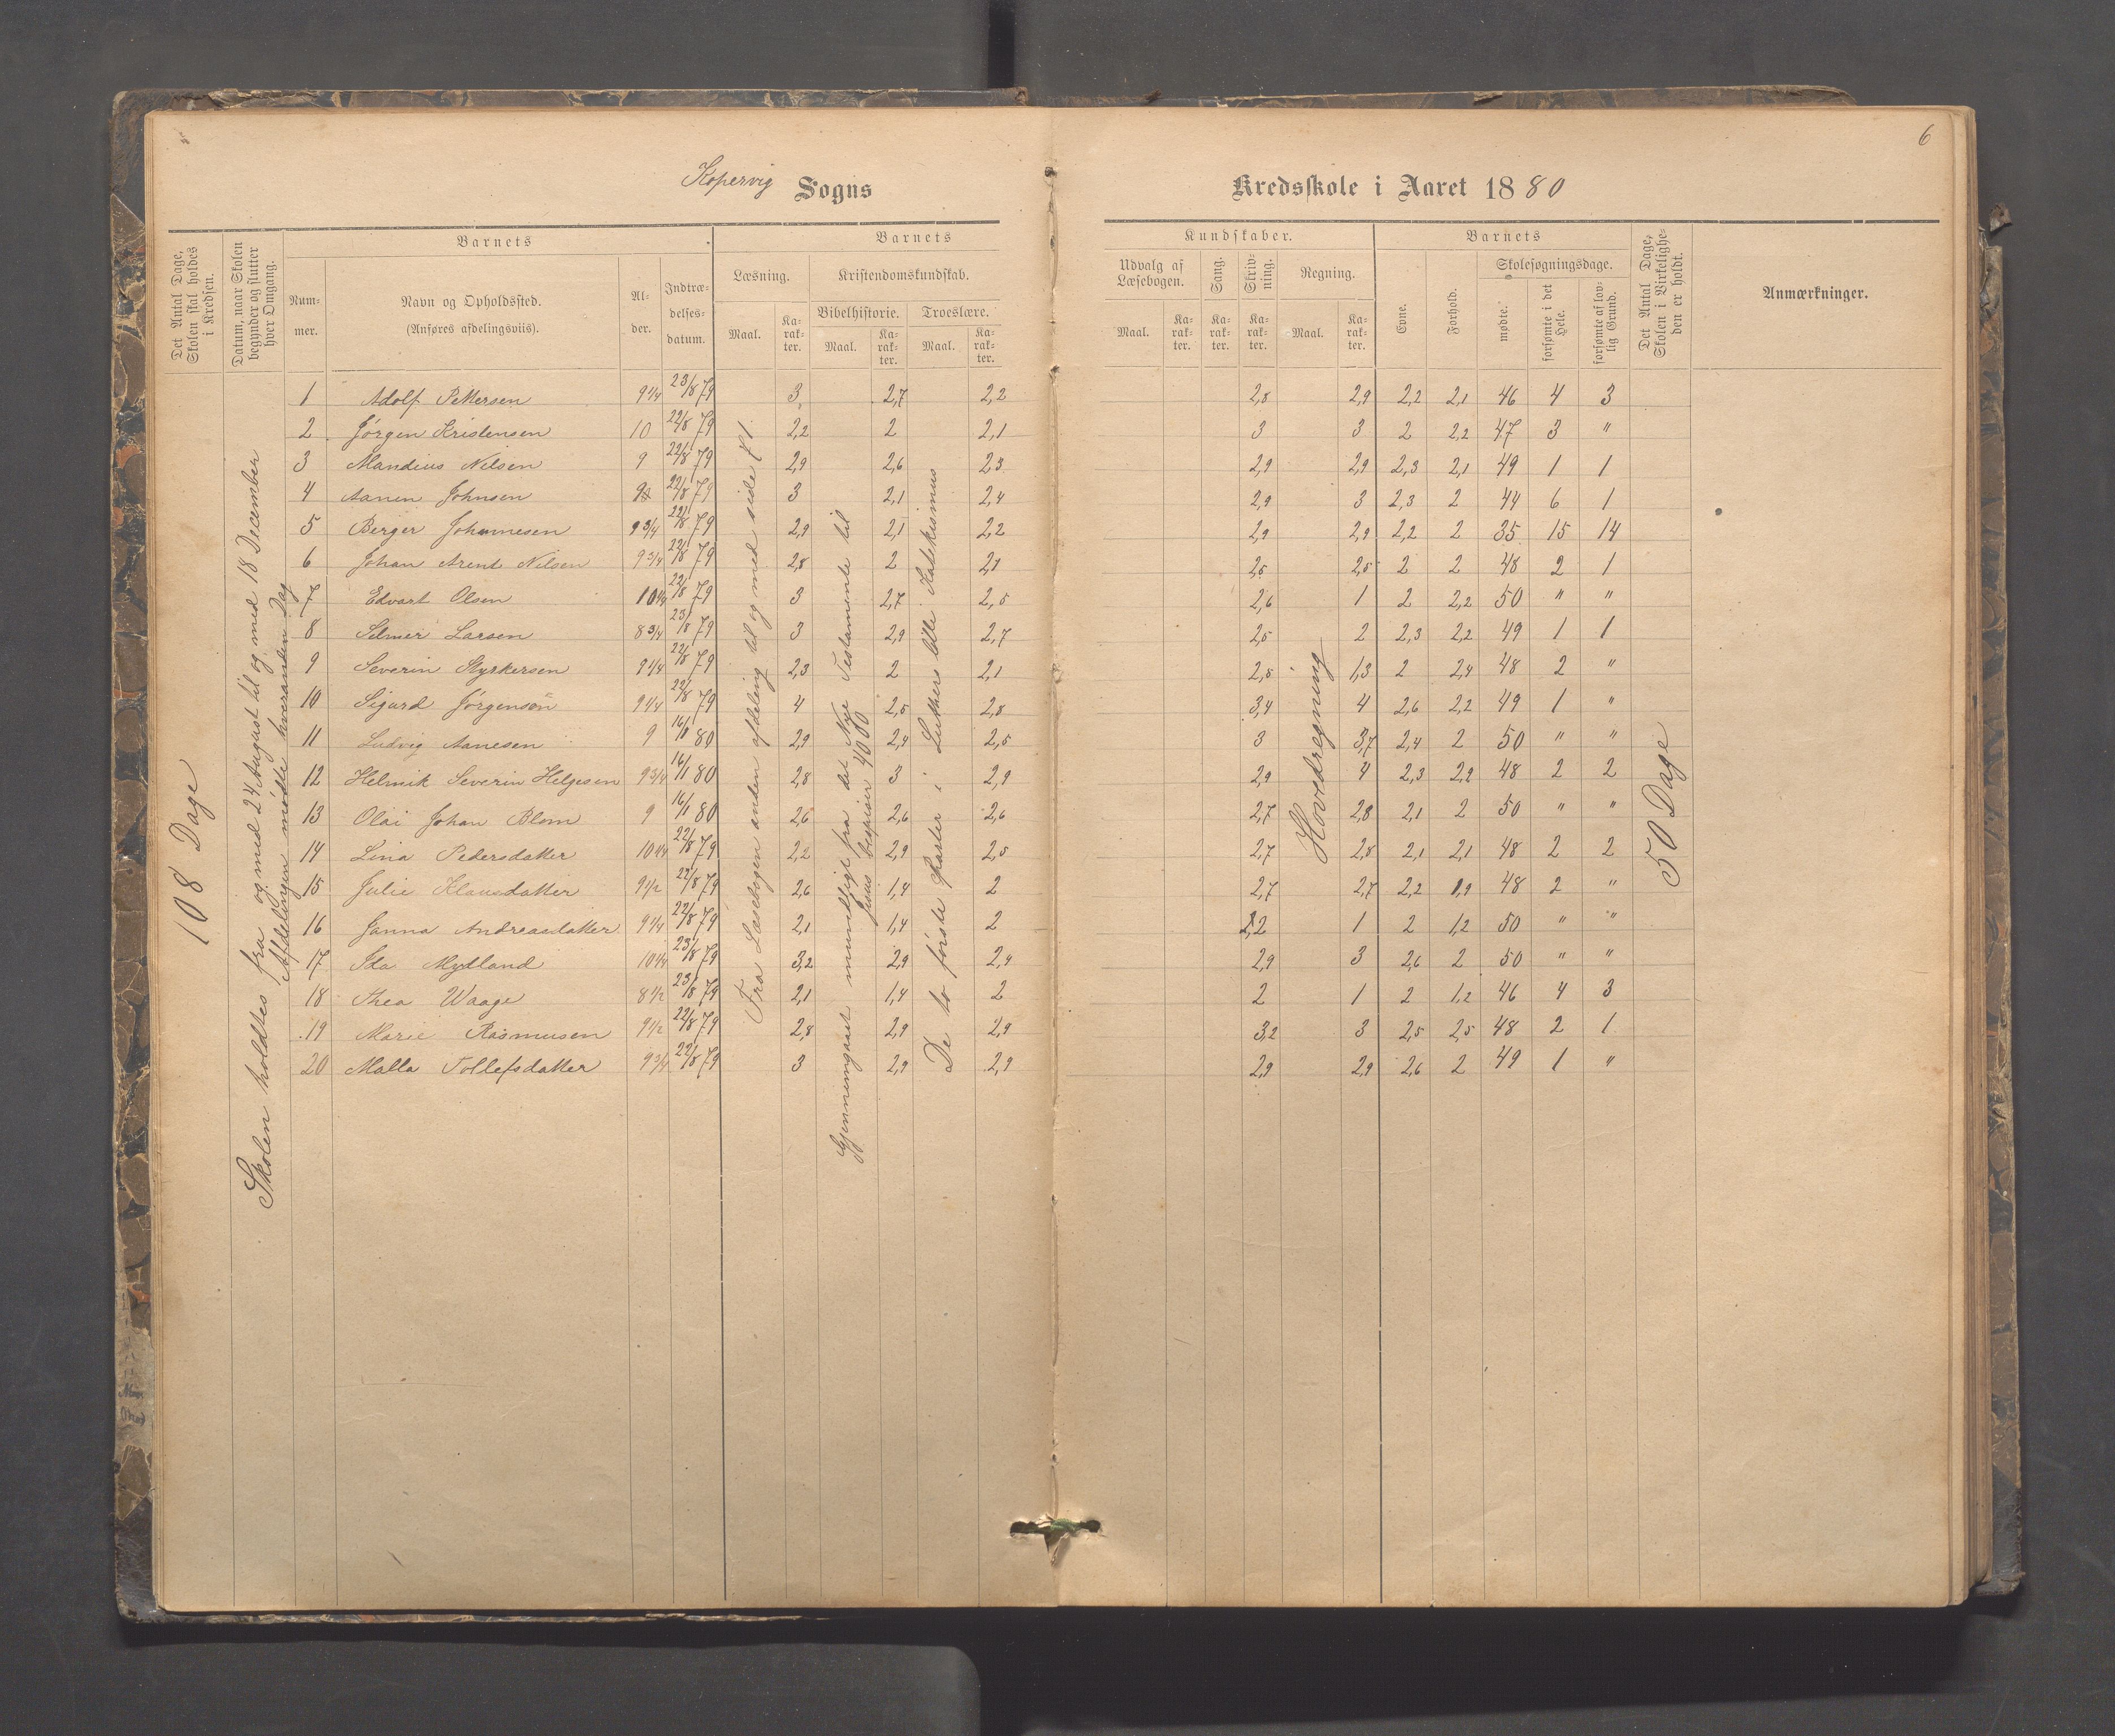 6
Kopervig Sogns Kredsskole i Aaret 1880
Det Antal Dage, Skolen skal holdes i Kredsen.
Datum, naar Skolen begynder og slutter hver Omgang.
Barnets
Nummer.
Navn og Opholdssted.
(Anføres afdelingsviis).
Alder.
Indtrædelsesdatum.
Barnets Kundskaber.
Læsning.
Maal.
Karakter.
Kristendomskundskab.
Bibelhistorie.
Maal.
Karakter.
Troeslære.
Maal.
Karakter.
Udvalg af Læsebogen.
Maal.
Karakter.
Sang.
Karakter.
Skrivning.
Karakter.
Regning.
Maal.
Karakter.
Barnets
Evne.
Forhold.
Skolesøgningsdage.
mødte.
forsømte i det Hele.
forsømte af lovlig Grund.
Det Antal Dage, Skolen i Virkeligheden er holdt.
Anmærkninger.
108 Dage
Skolen holdtes fra og med 24 August til og med 18 December
Afdelingen mødte hveranden Dag
Fra Læsebogen anden afdeling til og med side 81.
Gjennemgaaet mundtligt fra det Nye Testamente til
Jesus bespiser 4000
De to første Parter i Luthers lille Katekismus
Hovedregning
50 Dage
1 Adolf Pettersen 9 1/4 23/8 79 3 2,7 2,2 2,8 2,9 2,2 2,1 46 4 3
2 Jørgen Kristensen 10 22/8 79 2,2 2 2,1 3 3 2 2,2 47 3 "
3 Mandius Nilsen 9 22/8 79 2,9 2,6 2,3 2,9 2,9 2,3 2,1 49 1 1
4 Aanen Johnsen 9 22/8 79 3 2,1 2,4 2,9 3 2,3 2 44 6 1
5 Berger Johannesen 9 3/4 22/8 79 2,9 2,1 2,2 2,9 2,9 2,2 2 35 15 14
6 Johan Arent Nilsen 9 3/4 22/8 79 2,8 2 2,1 2,5 2,5 2 2 48 2 1
7 Edvart Olsen 10 1/4 22/8 79 3 2,7 2,5 2,6 1 2 2,2 50 " "
8 Selmer Larsen 8 3/4 23/8 79 3 2,9 2,7 2,5 2 2,3 2,2 49 1 1
9 Severin Styrkersen 9 1/4 22/8 79 2,3 2 2,1 2,5 1,3 2 2,4 48 2 "
10 Sigurd Jørgensen 9 1/4 22/8 79 4 2,5 2,8 3,4 4 2,6 2,2 49 1 "
11 Ludvig Aanesen 9 16/1 80 2,9 2,4 2,5 3 3,7 2,4 2 50 " "
12 Helmik Severin Helgesen 9 3/4 16/1 80 2,8 3 2,9 2,9 4 2,3 2,2 48 2 2
13 Olai Johan Blom 9 16/1 80 2,6 2,6 2,6 2,7 2,8 2,1 2 50 " "
14 Lina Pedersdatter 10 1/4 22/8 79 2,2 2,9 2,5 2,7 2,8 2,1 2,1 48 2 2
15 Julie Klausdatter 9 1/2 22/8 79 2,6 1,4 2 2,7 2,7 2,2 1,9 48 2 "
16 Janna Andreasdatter 9 1/4 22/8 79 2,1 1,4 2 2,2 1 2 1,2 50 " "
17 Ida Mydland 10 1/4 23/8 79 3,2 2,9 2,4 2,9 3 2,6 2 50 " "
18 Thea Waage 8 1/2 23/8 79 2,1 1,4 2 2 1 2 1,2 46 4 3
19 Marie Rasmusen 9 1/2 22/8 79 2,8 2,9 2,9 3,2 3 2,5 2,5 48 2 1
20 Malla Tollefsdatter 9 3/4 22/8 79 3 2,9 2,9 2,9 2,9 2,6 2 49 1 "